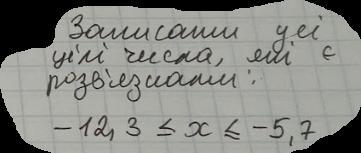 Записати усі
цілі числа, які є
розв'язками:
-12,3 ≤ x ≤ -5,7